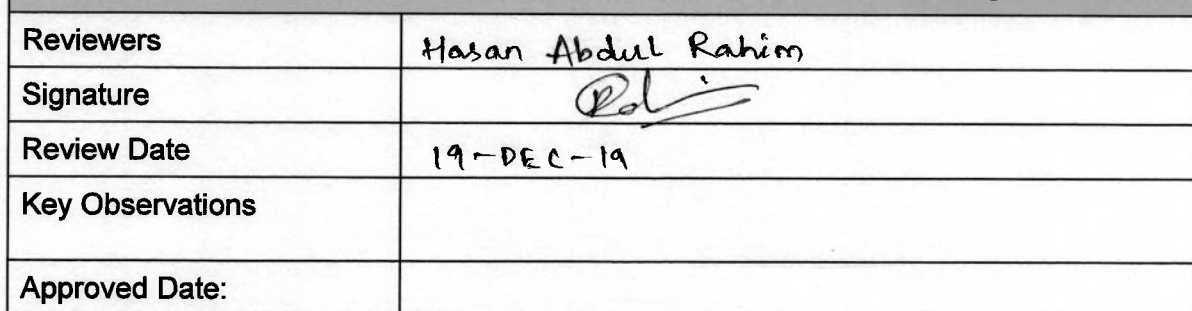 Reviewers Hasan Abdul Rahim
Signature
Review Date 19-DEC-19
Key Observations
Approved Date: